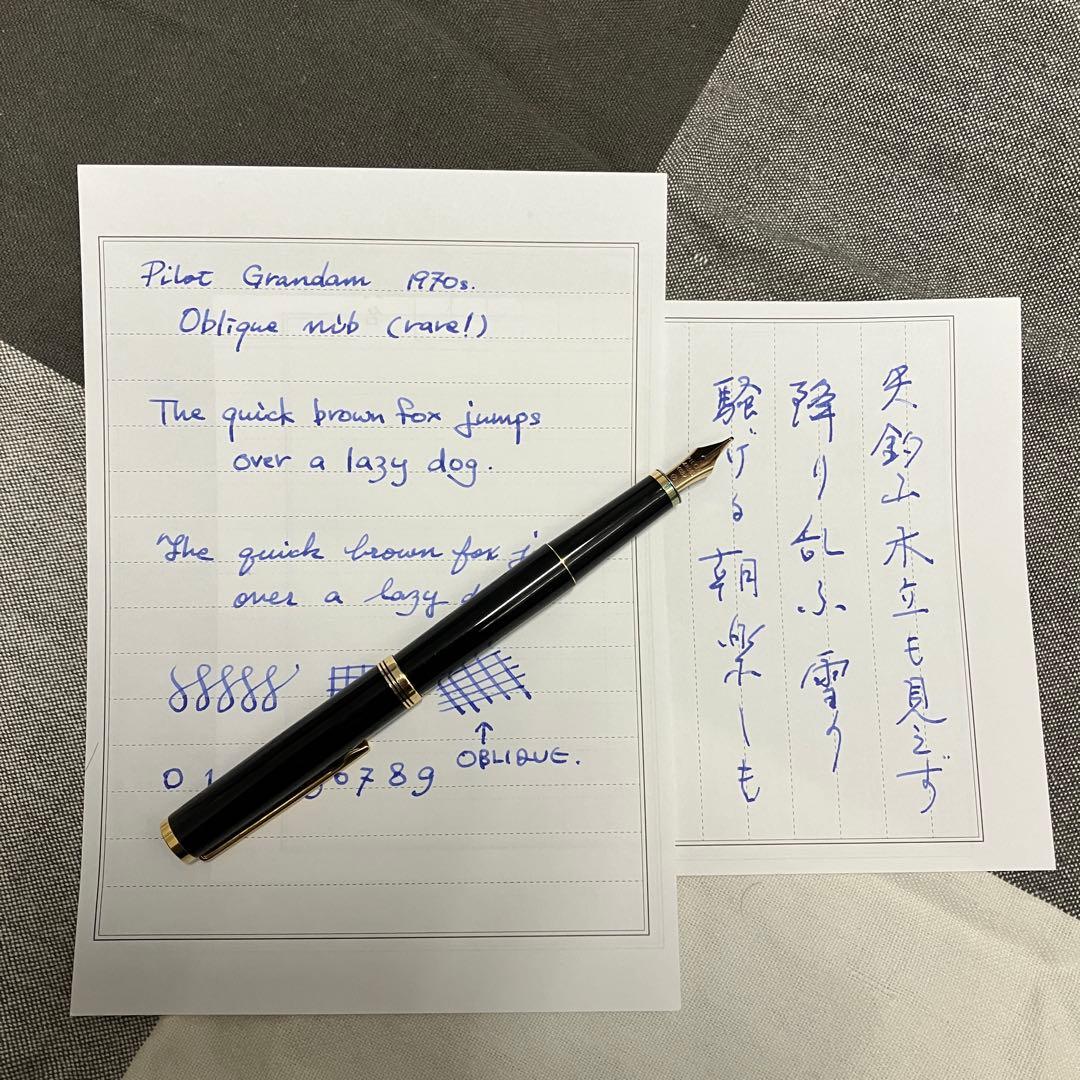 Pilot Grandam 1970s.
Oblique nib (rare!)
The quick brown fox jumps
over a lazy dog.
The quick brown fox j
over a lazy d
OBLIQUE.
0 1 6 7 8 9
矢釣山木立も見えず
降り乱ふ雪
騒げる朝楽しも